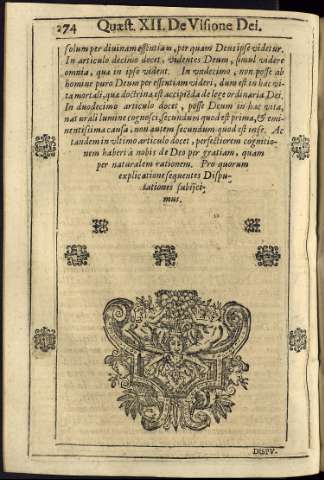 274 Quæst. XII. De Visione Dei.
solum per divinam essentiam, per quam Deus ipse videtur.
In articulo decimo docet, videntes Deum, simul videre
omnia, quæ in ipso vident. In undecimo, non posse ab
homine puro Deum per essentiam videri, dum est in hac vi-
ta mortali, quæ doctrina est accipiẽda de lege ordinaria Dei.
In duodecimo articulo docet, posse Deum in hac vita,
naturali lumine cognosci, secundum quod est prima, & emi-
nentissima causa, non autem secundum quod est in se. Ac
tandem in ultimo articulo docet, perfectiorem cognitio-
nem haberi à nobis de Deo per gratiam, quam
per naturalem rationem. Pro quorum
explicatione sequentes Dispu-
tationes subijci-
mus.
DISPV-